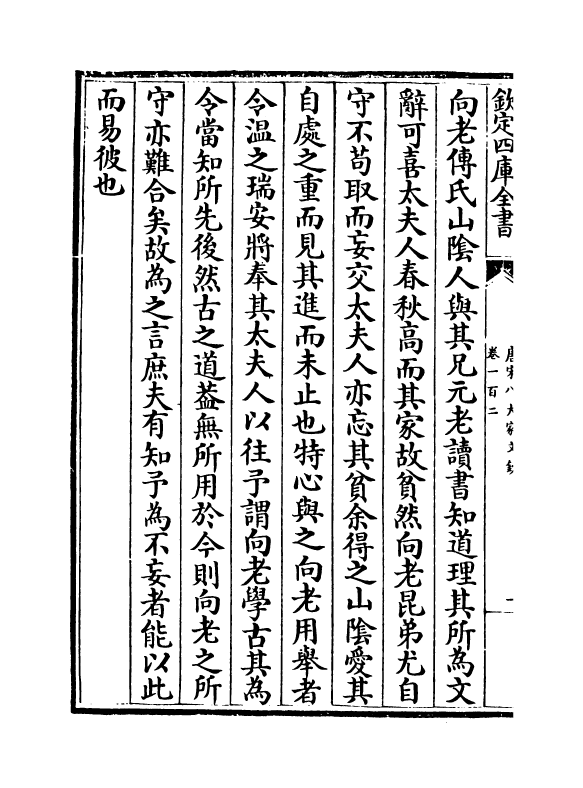 欽定四庫全書
唐宋八大家文鈔
卷一百二
向老傅氏山隂人與其兄元老讀書知道理其所為文
辭可喜太夫人春秋高而其家故貧然向老昆弟尤自
守不苟取而妄交太夫人亦忘其貧余得之山隂愛其
自處之重而見其進而未止也特心與之向老用舉者
令溫之瑞安將奉其太夫人以往予謂向老學古其為
令當知所先後然古之道葢無所用於今則向老之所
守亦難合矣故為之言庶夫有知予為不妄者能以此
而易彼也